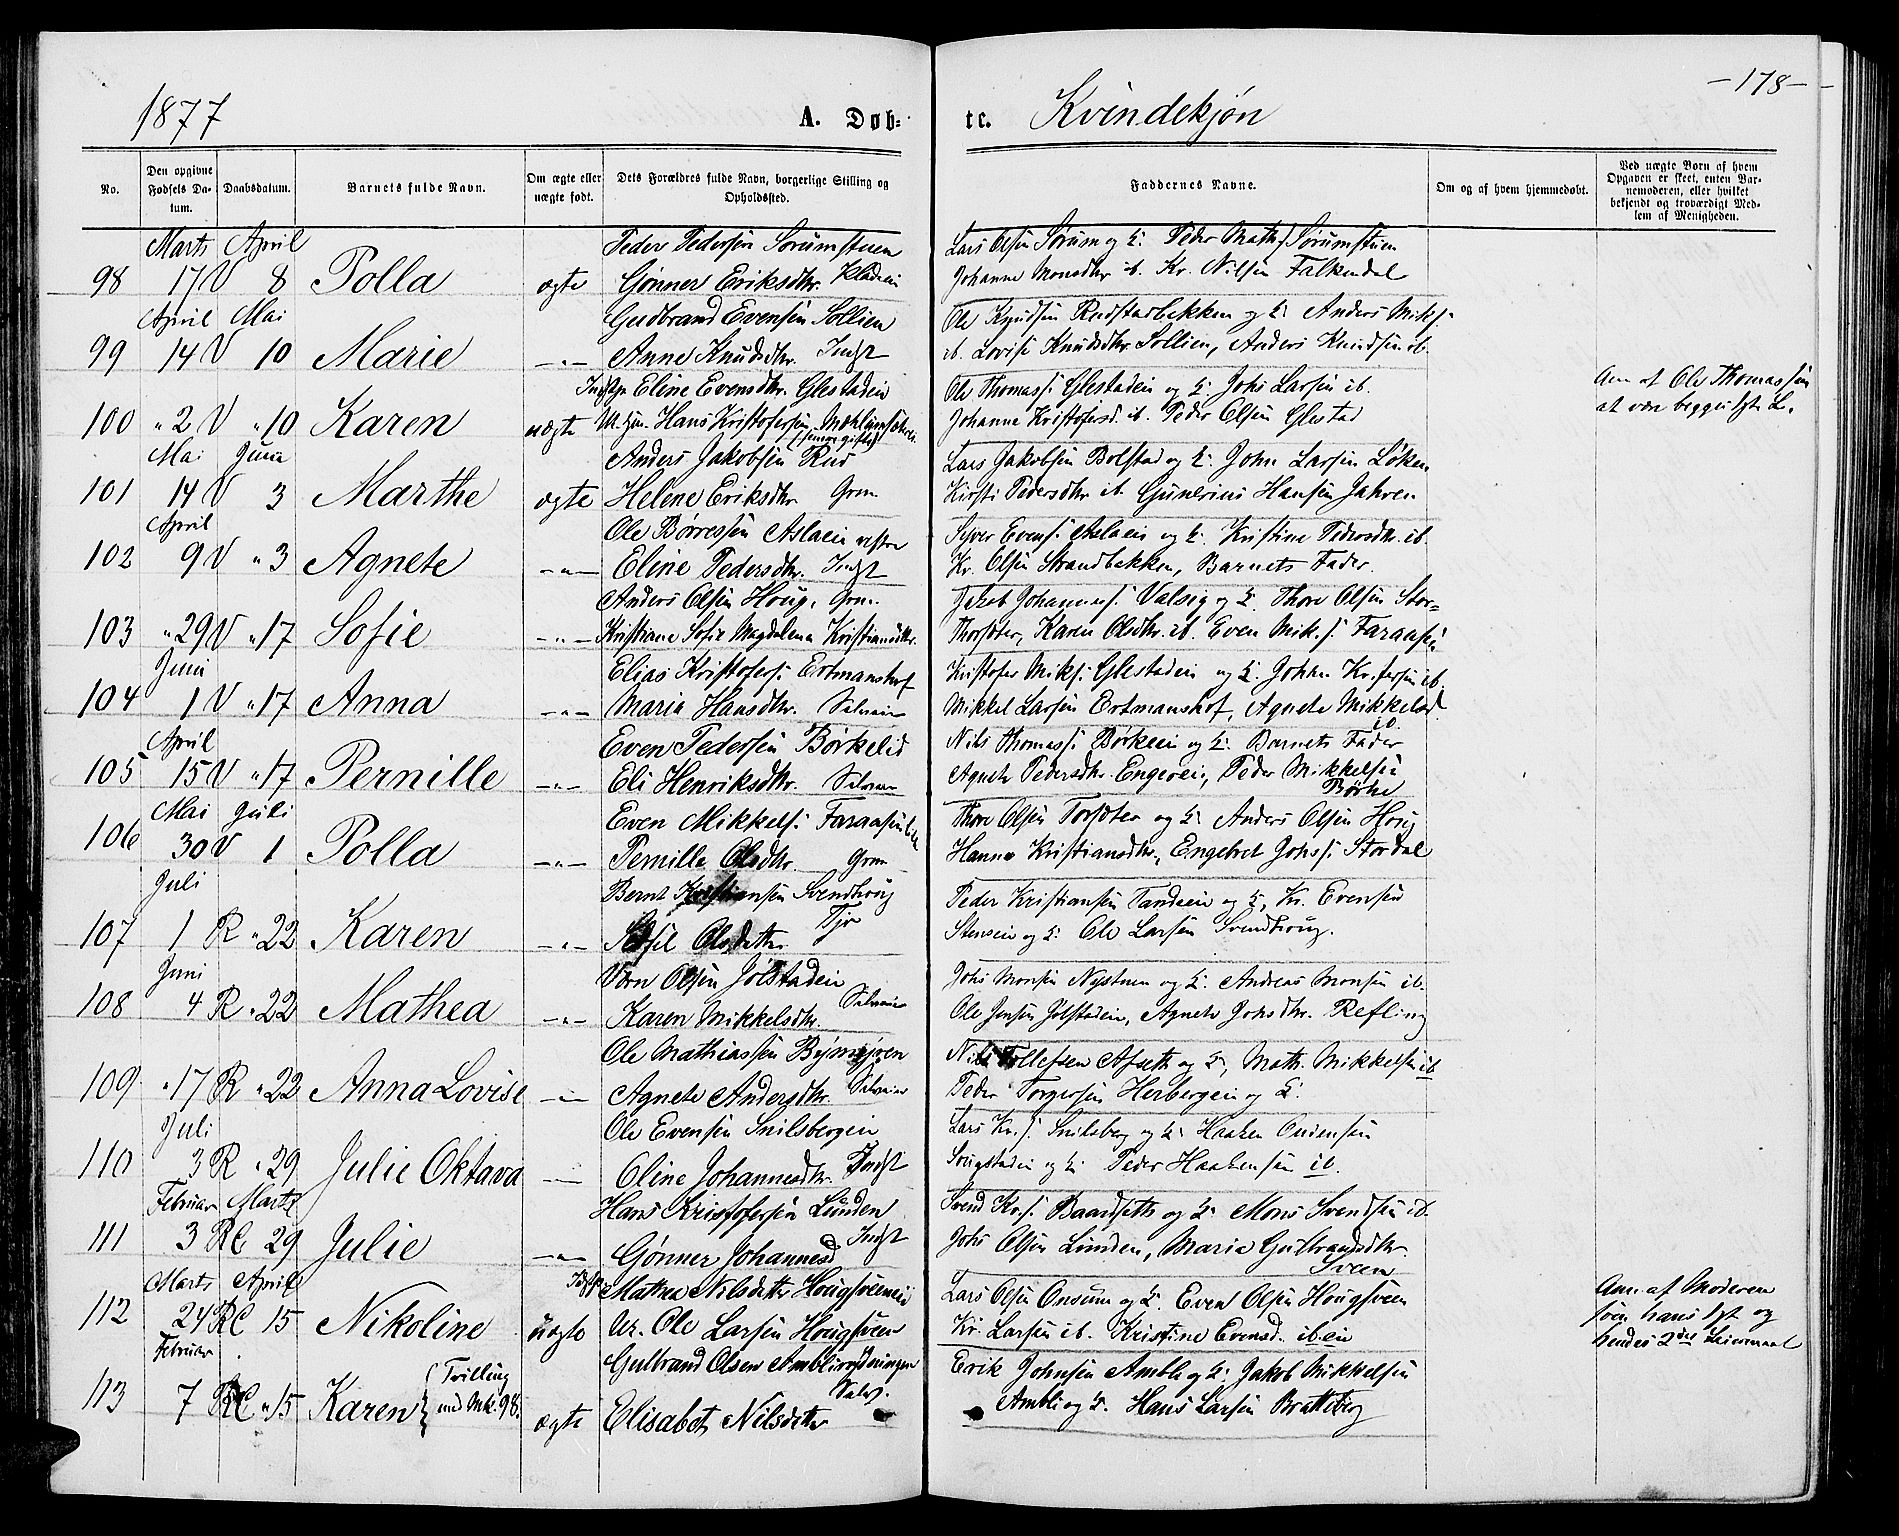 1877
A. Døb-
te.
Kvindekjøn
-178-
No.
Den opgivne Fødsels Datum.
Daabsdatum.
Barnets fulde Navn.
Om ægte eller uægte født.
Dets Forældres fulde Navn, borgerlige Stilling og Opholdssted.
Faddernes Navne.
Om og af hvem hjemmedøbt.
Ved uægte Børn af hvem Opgaven er skeet, enten Barnemoderen, eller hvilket bekjendt og troværdigt Medlem af Menigheden.
Marts April Peder Pedersen Sørumstuen Lars Olsen Sørum og Peder Math. Sørumstuen
98 17 V 8 Polla ægte Gønner Eriksdtr. Johanne Monsdtr ib. Kr. Nilsen Falkendal
April Mai Gudbrand Evensen Sollien Ole Knudsen Rudstadbakken og Anders Miks.
99 14 V 10 Marie -"- Anne Knudsdtr. Indst ib. Lovise Knudsdtr. Sollien, Anders Knudsen ib.
Eline Evensdtr. Glestadein Ole Thomass. Glestadein og Johs Larsen ib. Ann. af Ole Thomassen
100 " 2 V " 10 Karen uægte Hans Kristofersen Johanne Kristofersd. ib. Peder Olsen Glestad at være begges 1ste L.
Mai Juni Anders Jakobsen Rud Lars Jakobsen Bolstad og John Larsen Løken
101 14 V 3 Marthe ægte Helene Eriksdtr. Grm. Kirsti Pedersdtr ib. Gunerius Hansen Jahren
April Ole Børresen Aslaein vestre Syver Evens. Aslaein og Kristine Pedersdtr. ib.
102 9 V " 3 Agnete -"- Eline Pedersdtr. Indst Kr. Olsen Strandbakken, Barnets Fader.
Anders Olsen Houg, Grm. Johanness. Valsig og Thore Olsen Stor-
103 " 29 V " 17 Sofie -"- Kristiane Sofie Magdalena Kristiansdtr. Thorsdter, Karen Olsdtr. ib. Even Mik.s. Faraasen
Juni Elias Kristofers. Ertmanshof Kristofer Miks. Glestadein og Johan Kr.fersen ib.
104 1 V " 17 Anna -"- Maria Hansdtr. Selveier Mikkel Larsen Ertmanshof, Agnete Mikkelsd. ib.
April Even Pedersen Børkelid Nils Thomass. Børkeein og Barnets Fader
105 15 V " 17 Pernille -"- Eli Henriksdtr. Selveier Agnete Pedersdtr. Engerei, Peder Mikkelsen Børke
Mai Juli Even Mikkels. Faraasen Thore Olsen Torsdter og Anders Olsen Houg
106 30 V 1 Polla -"- Pernille Olsdtr. Grm Hanna Kristiansdtr., Engebret Johs.s. Stordal
Juli Bernt Kristiansen Svendhoug Peder Kristiansen Tandeein og Kr. Evensen
107 1 R " 22 Karen -"- Olsdatter Tjr Stensein og Ole Larsen Svendhoug.
Juni Olsen Jølstadein Johs Monsen Nystuen og Andreas Monsen ib.
108 4 R " 22 Mathea -"- Karen Mikkelsdtr. Selveier Ole Jensen Jølstadein, Agnete Johsdtr. Refling
Ole Mathiassen Nils Tollefsen Afseth og Math. Mikkelsen ib
109 " 17 R " 22 Anna Lovise -"- Agnete Andersdtr. Selveier Peder Torgersen Herbergein og
Juli Ole Evensen Snilsbergein Lars Kr.s. Snilsberg og Haaken Audensen
110 3 R " 29 Julie Oktava -"- Oline Johannesdtr. Indst og Peder Haakensen ib.
Februar Marts Hans Kristofersen Lunden Svend Kr.s. Baardseth og Mons Svendsen ib.
111 3 RC 29 Julie -"- Gønner Johannesd Indst Johs Olsen Lunden, Maria Gulbrandsdtr. Sveen
Marts April Mathea Nilsdatter Hougsveenein Lars Olsen Onsum og Even Olsen Hougsveen Ann. af Moderen
112 24 RC 15 Nikoline uægte Ur. Ole Larsen Hougsveen Kr. Larsen ib. Kristine Evensd. ib. ein som hans 1st og
Februar hendes 2det Leiermaal
Gulbrand Olsen Erik Johnsen Ambli og Jakob Mikkelsen
113 7 RC " 15 Karen { Tvilling med Mk. 98. ægte Elisabet Nilsdatter Selvj. Ambli og Hans Larsen Bratteberg